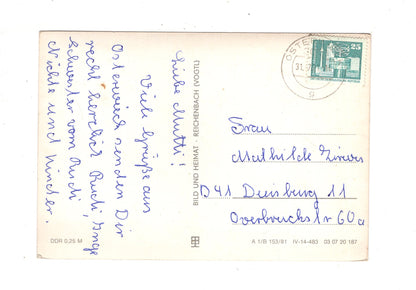 Liebe Mutti!
Viele Grüße aus
Osterwieck senden Dir
recht herzlich Rudi, Inge
Schwester vom Rudi,
Nichte und Kinder.
BILD UND HEIMAT · REICHENBACH (VOGTL)
25
OSTER
31.
g
Frau
Mathilde
D41 Duisburg 11
Overbruchstr 60a
DDR 0,25 M
A 1/B 153/81 IV-14-483 03 07 20 187